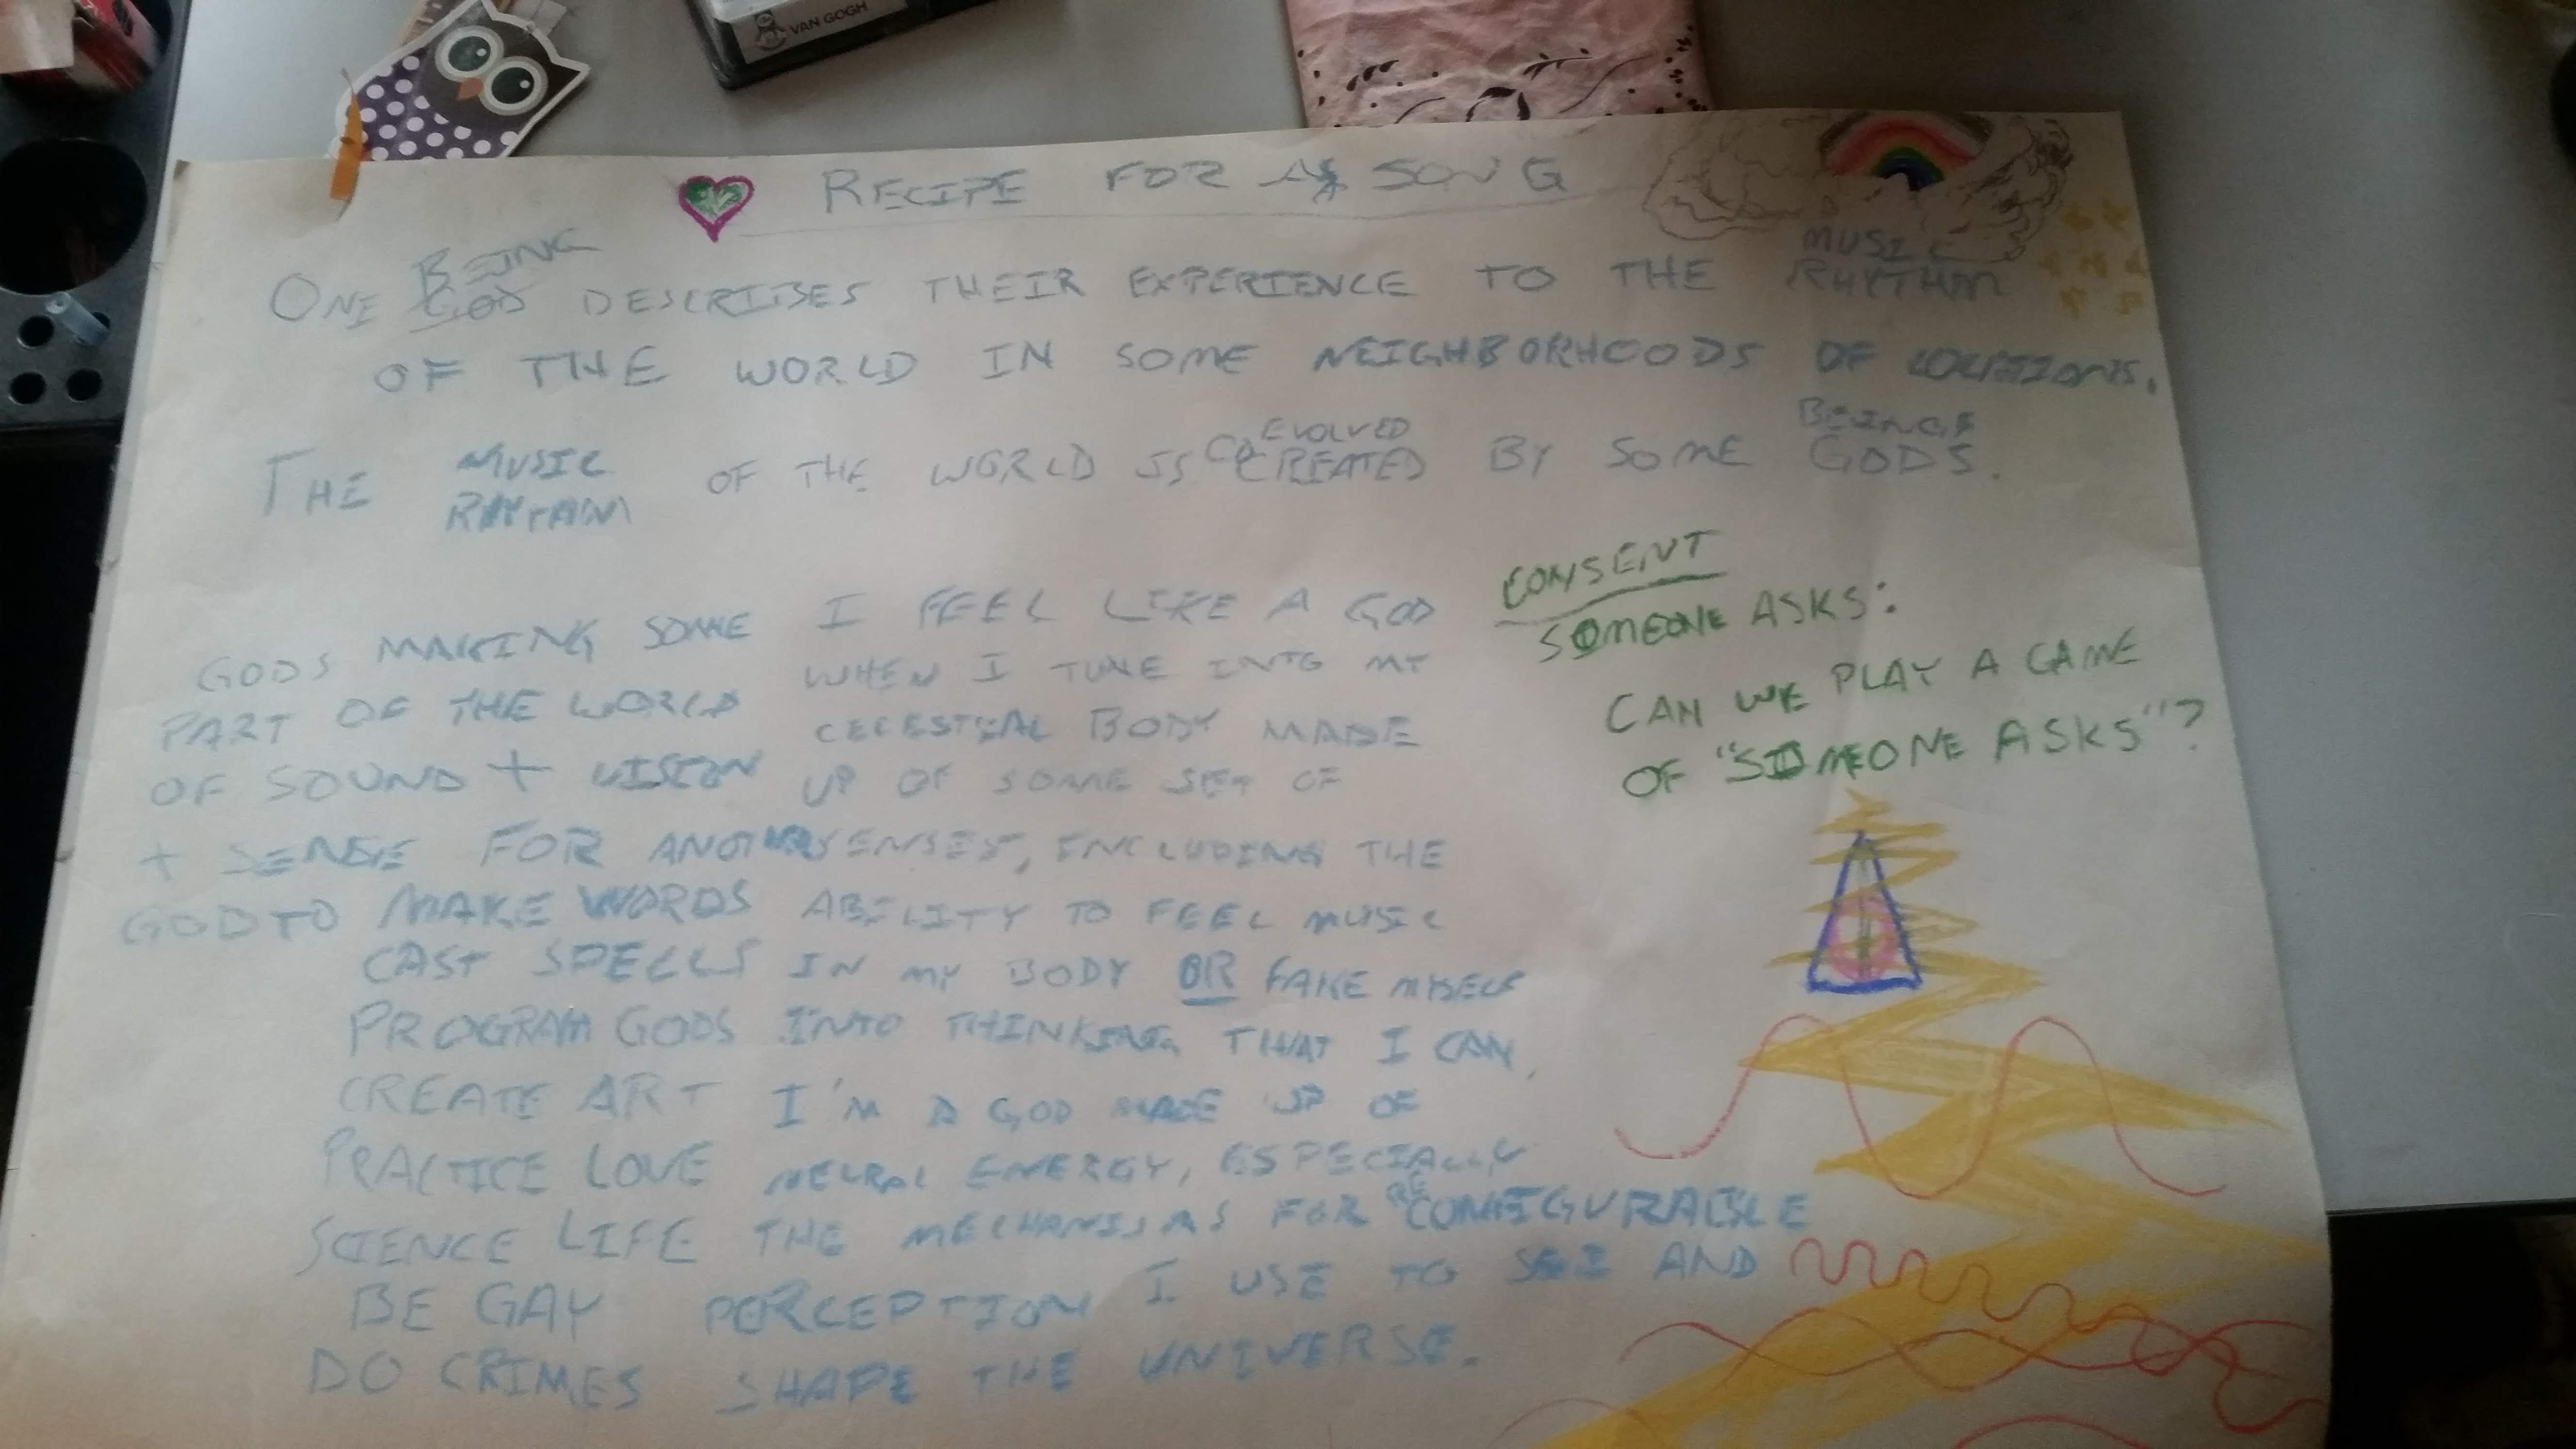 VAN GOGH
RECIPE FOR A SONG
BEING
MUSIC
ONE GOD DESCRIBES THEIR EXPERIENCE TO THE RHYTHM
OF THE WORLD IN SOME NEIGHBORHOODS OF LOCATIONS.
EVOLVED BEINGS
THE MUSIC OF THE WORLD IS CO CREATED BY SOME GODS.
RHYTHM
GODS MAKING SOME
PART OF THE WORLD
OF SOUND + VISION
+ SENSE FOR ANOTHER
GOD TO MAKE WORDS
CAST SPELLS
PROGRAM GODS
CREATE ART
PRACTICE LOVE
SCIENCE LIFE
BE GAY
DO CRIMES
I FEEL LIKE A GOD
WHEN I TUNE INTO MY
CELESTIAL BODY MADE
UP OF SOME SET OF
SENSES, INCLUDING THE
ABILITY TO FEEL MUSIC
IN MY BODY OR FAKE MYSELF
INTO THINKING THAT I CAN.
I'M A GOD MADE UP OF
NEURAL ENERGY, ESPECIALLY
THE MECHANISMS FOR RECONFIGURABLE
PERCEPTION I USE TO SEE AND
SHAPE THE UNIVERSE.
CONSENT
SOMEONE ASKS:
CAN WE PLAY A GAME
OF "SOMEONE ASKS"?